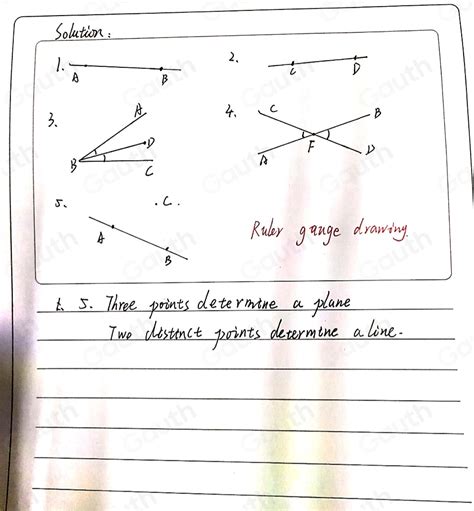 Solution:
1. A B
2. C D
3. A D B C
4. C B F A D
5. .C. A B
Ruler gauge drawing.
t. 5. Three points determine a plane
Two distinct points determine a line.